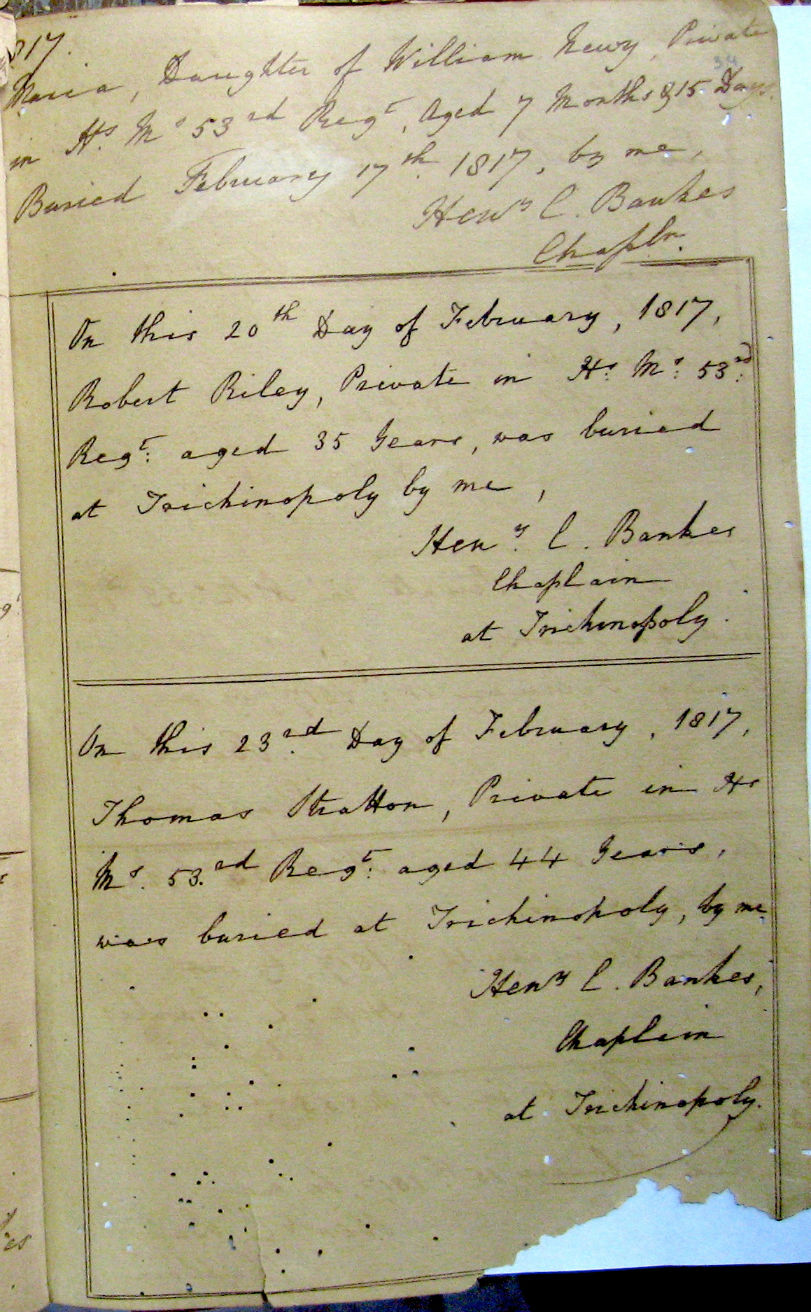 1817.
34
Maria, Daughter of William Newy, Private
in Hs Ms 53rd Regt, Aged 7 Months & 15 Days.
Buried February 17th 1817, by me,
Heny C. Bankes
Chapln.
On this 20th Day of February, 1817,
Robert Riley, Private in Hs. Ms. 53rd.
Regt: aged 35 Years, was buried
at Trichinopoly by me,
Heny. C. Bankes
Chaplain
at Trichinopoly.
On this 23rd. Day of February, 1817,
Thomas Stratton, Private in Hs
Ms. 53.rd Regt: aged 44 Years,
was buried at Trichinopoly, by me
Heny C. Bankes,
Chaplain
at Trichinopoly.